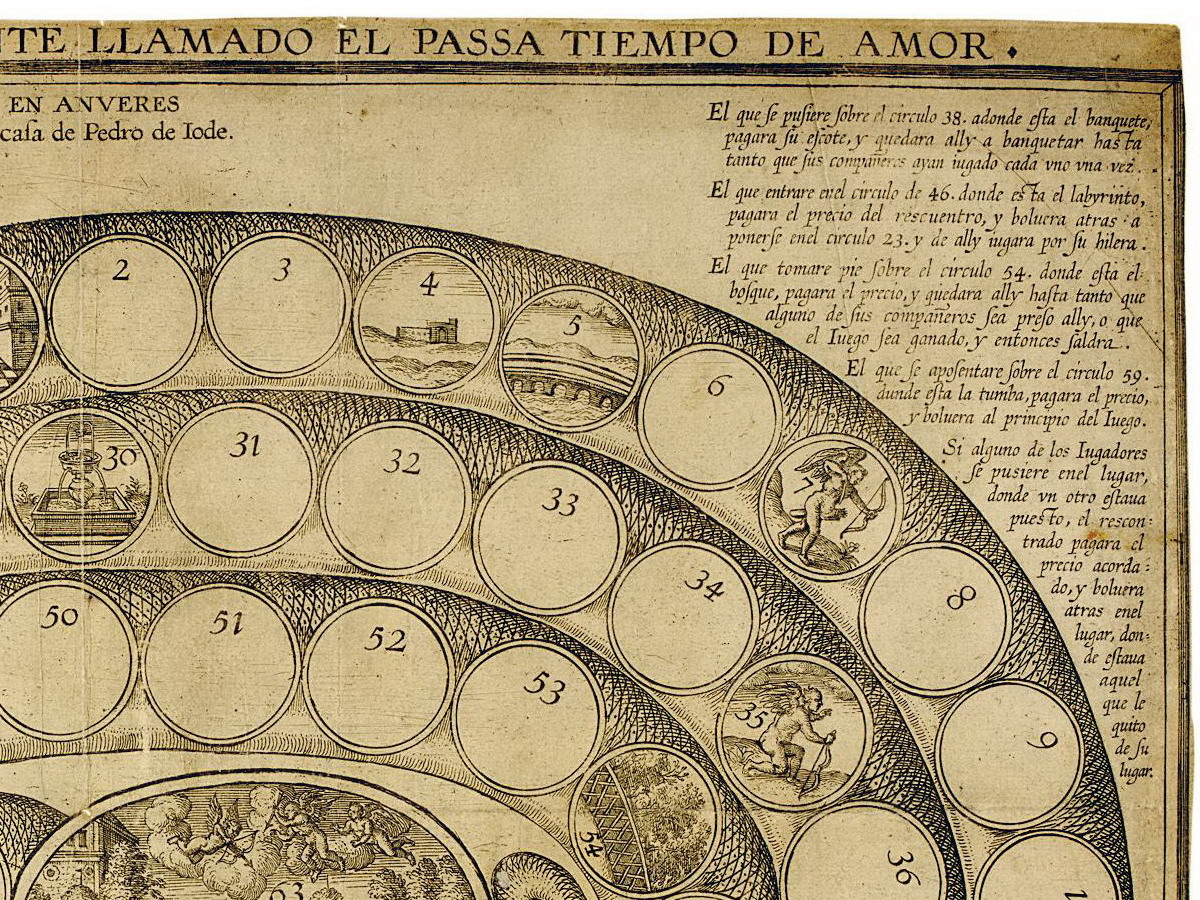 NTE LLAMADO EL PASSA TIEMPO DE AMOR.
EN ANVERES
casa de Pedro de Iode.
El que se pusiere sobre el circulo 38. adonde esta el banquete,
pagara su escote, y quedara ally a banquetar hasta
tanto que sus compañeros ayan iugado cada vno vna vez.
El que entrare enel circulo de 46. donde esta el labyrinto,
pagara el precio del rescuentro, y boluera atras a
ponerse enel circulo 23. y de ally iugara por su hilera.
El que tomare pie sobre el circulo 54. donde esta el
bosque, pagara el precio, y quedara ally hasta tanto que
alguno de sus compañeros sea preso ally, o que
el Iuego sea ganado, y entonces saldra.
El que se aposentare sobre el circulo 59.
dunde esta la tumba, pagara el precio,
y boluera al principio del Iuego.
Si alguno de los Iugadores
se pusiere enel lugar,
donde vn otro estaua
puesto, el rescon:
trado pagara el
precio acorda:
do, y boluera
atras enel
lugar, don:
de estaua
aquel
que le
quito
de su
lugar.
2
3
4
5
6
7
8
9
30
31
32
33
34
35
36
50
51
52
53
54
63